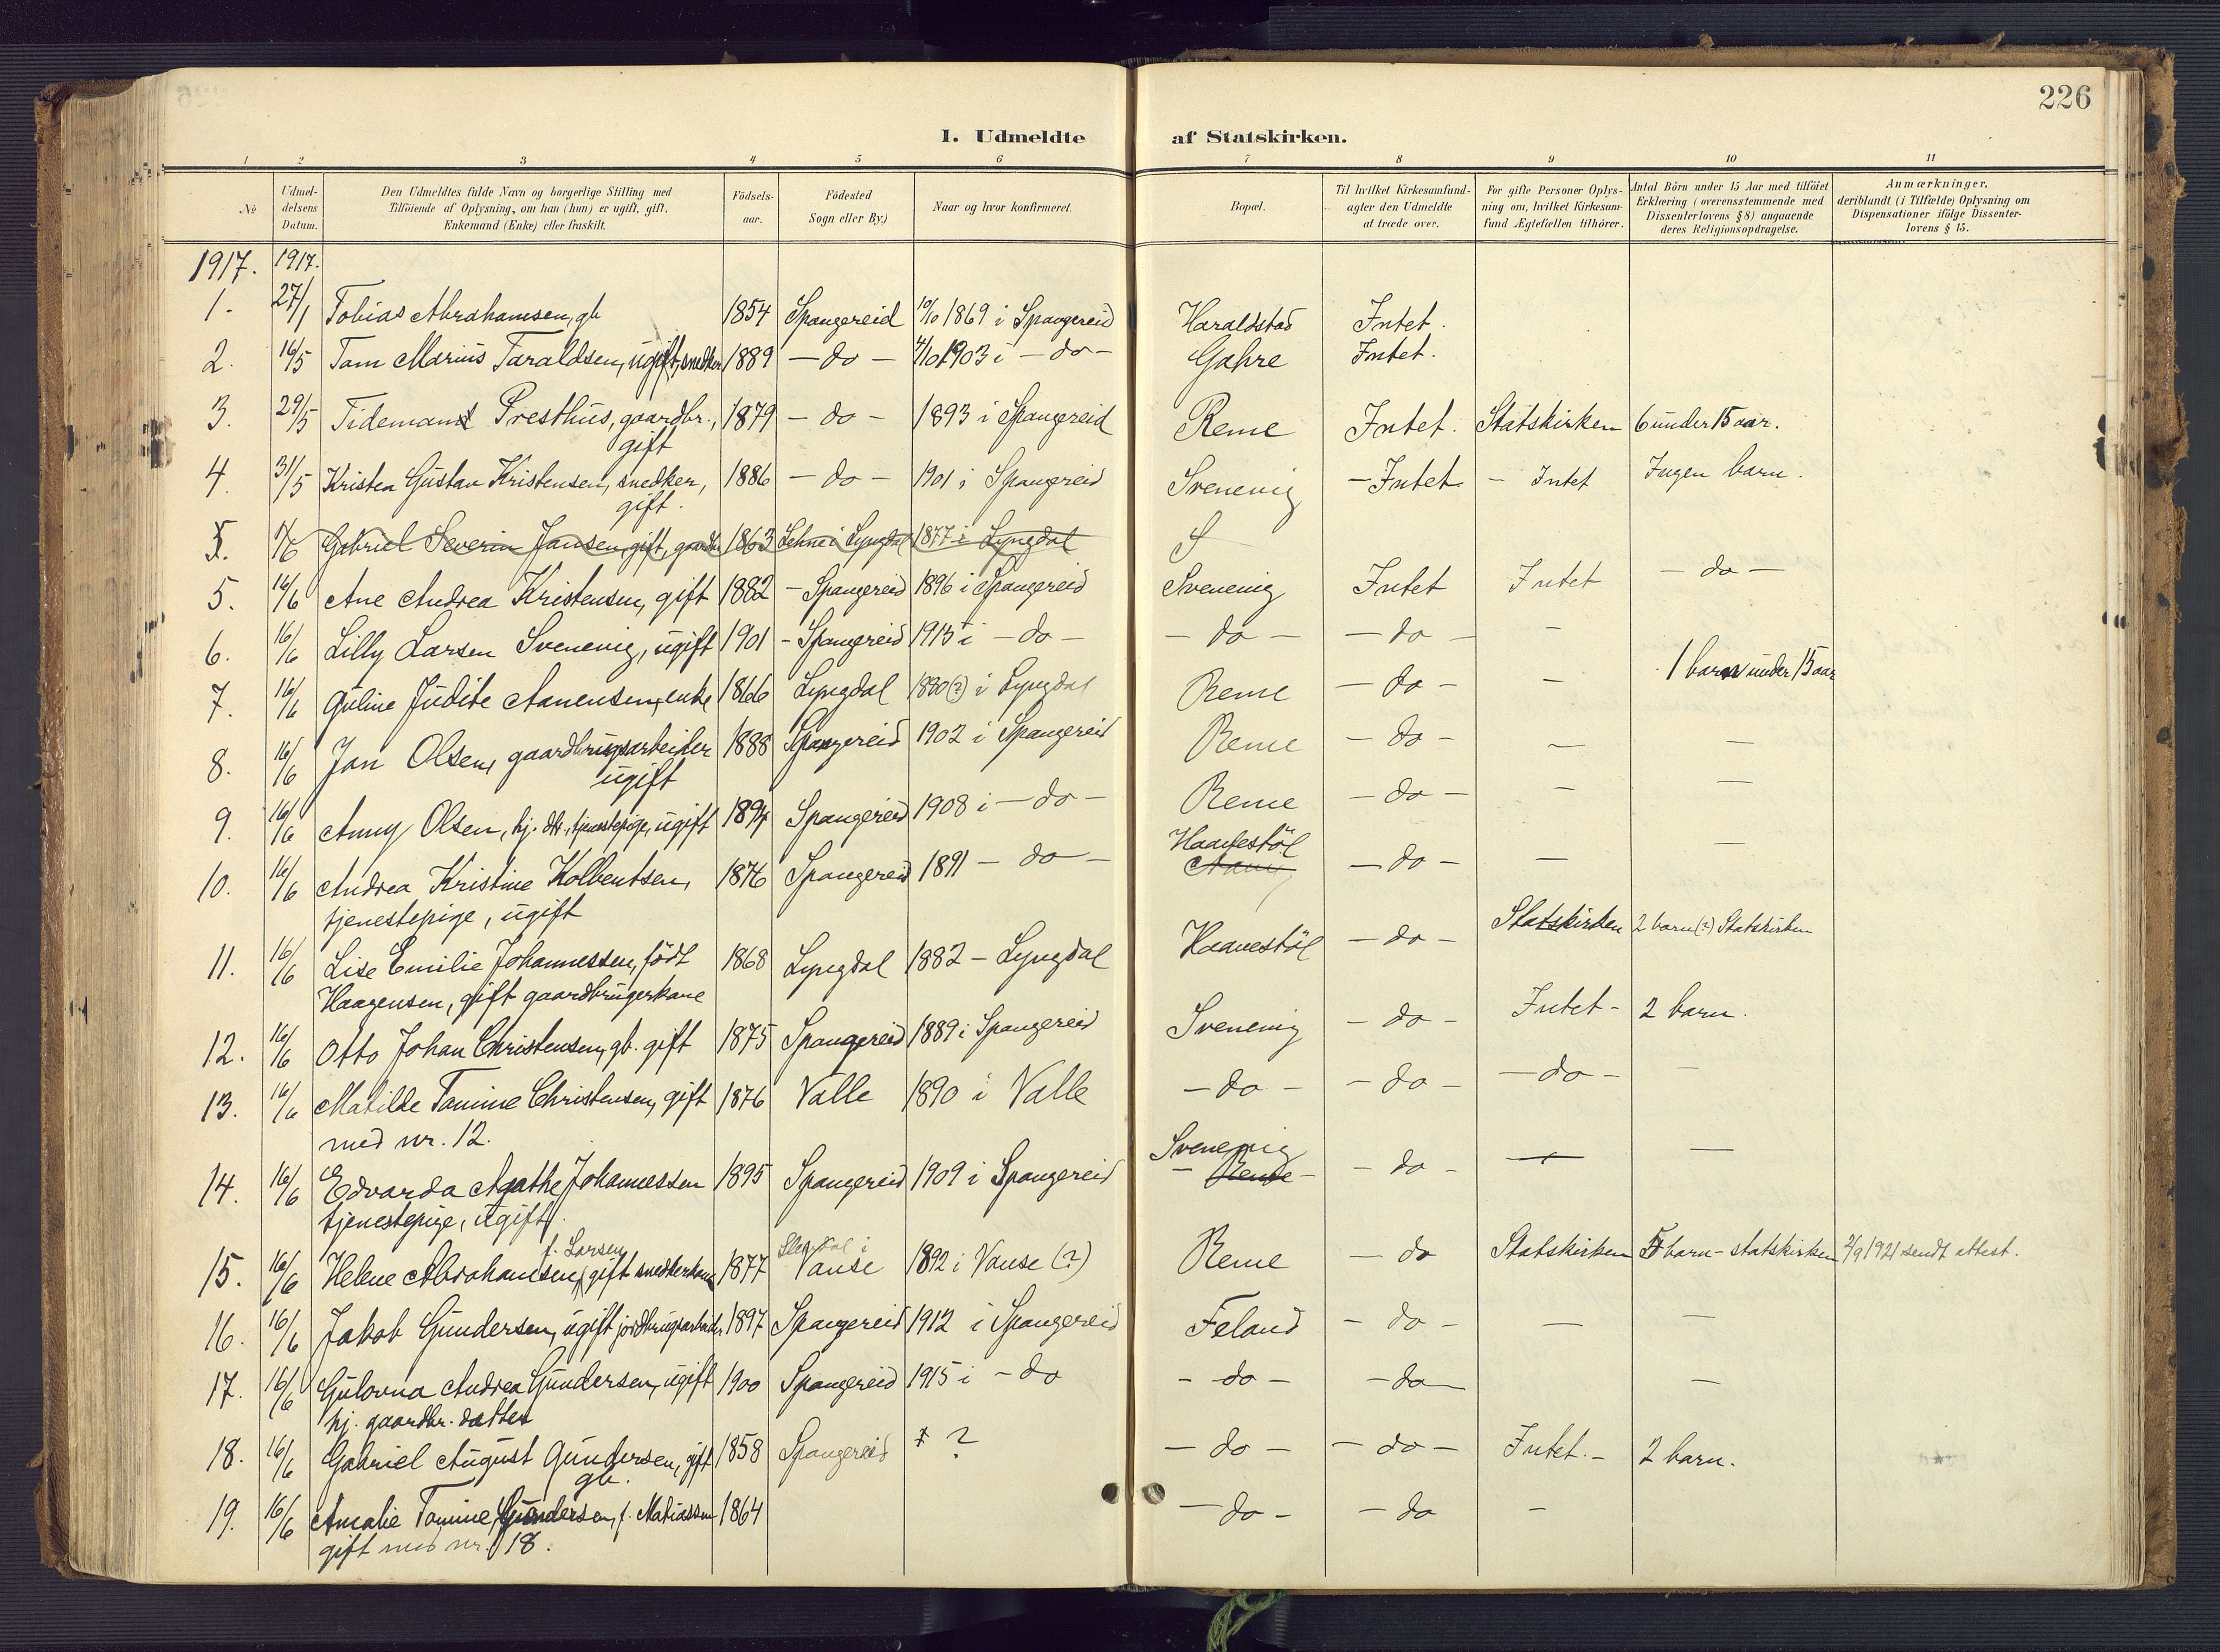 226
I. Udmeldte af Statskirken.
1 2 3 4 5 6 7 8 9 10 11
№
Udmel-
delsens
Datum.
Den Udmeldtes fulde Navn og borgerlige Stilling med
Tilföiende af Oplysning, om han (hun) er ugift, gift,
Enkemand (Enke) eller fraskilt.
Födsels-
aar.
Födested
Sogn eller By.)
Naar og hvor konfirmeret.
Bopæl.
Til hvilket Kirkesamfund-
agter den Udmeldte
at træde over.
For gifte Personer Oplys-
ning om, hvilket Kirkesam-
fund Ægtefællen tilhörer.
Antal Börn under 15 Aar med tilföiet
Erklæring (overensstemmende med
Dissenterlovens § 8) angaaende
deres Religionsopdragelse.
Anmærkninger,
deriblandt (i Tilfælde) Oplysning om
Dispensationer ifölge Dissenter-
lovens § 15.
1917. 1917.
1. 27/1 Tobias Abrahamsen, gb 1854 Spangereid 10/10 1869 i Spangereid Haraldstad Intet.
2. 16/5 Tom Marius Taraldsen, ugift, snedker 1889 - do - 4/10 1903 i - do - Gahre Intet.
3. 29/5 Tidemand Presthus, gaardbr., 1879 - do - 1893 i Spangereid Reme Intet. Statskirken 6 under 15 aar.
gift
4. 31/5 Kristen Gustav Kristensen, snedker, 1886 - do - 1901 i Spangereid Svenevig - Intet - Intet Ingen barn.
gift.
5. 1/6 Gabriel Severin Jansen, gift, gaardbr 1863 Lehne i Lyngdal 1877 i Lyngdal S
5. 16/6 Ane Andrea Kristensen, gift 1882 - Spangereid 1896 i Spangereid Svenevig Intet Intet - do -
6. 16/6 Lilly Larsen Svenevig, ugift 1901 - Spangereid 1915 i - do - - do - - do - -
7. 16/6 Guline Judite Aanensen, enke 1866 Lyngdal 1880(?) i Lyngdal Reme - do - - 1 barn under 15 aar
8. 16/6 Jan Olsen, gaardbrugsarbeider 1888 Spangereid 1902 i Spangereid Reme - do - - -
ugift
9. 16/6 Anny Olsen, hj. dtr., tjenestepige, ugift 1894 Spangereid 1908 i - do - Reme - do - - -
Haavestöl
10. 16/6 Andrea Kristine Kolbentsen, 1876 Spangereid 1891 - do - - do - - -
tjenestepige, ugift
11. 16/6 Lise Emilie Johannessen, födt 1868 Lyngdal 1882 - Lyngdal Haavestöl - do - Statskirken 2 barn (?) Statskirken
Haagensen, gift gaardbrugerkone
12. 16/6 Otto Johan Christensen, gb. gift 1875 Spangereid 1889 i Spangereid Svenevig - do - Intet - 2 barn.
13. 16/6 Matilde Tomine Christensen, gift 1876 Valle 1890 i Valle - do - - do - - do - -
med nr. 12.
Svenevig
14. 16/6 Edvarda Agathe Johannessen 1895 Spangereid 1909 i Spangereid - Reme - - do - - -
tjenestepige, ugift.
f. Larsen
15. 16/6 Helene Abrahamsen, gift snedkerkone 1877 Vanse 1892 i Vanse (?) Reme - do Statskirken 5 barn - statskirken 2/9 1921 sendt attest.
16. 16/6 Jakob Gundersen, ugift jordbrugsarbeider 1897 Spangereid 1912 i Spangereid Feland - do - - -
17. 16/6 Gulovna Andrea Gundersen, ugift 1900 Spangereid 1915 i - do - do - - do - -
hj. gaardbr. datter
18. 16/6 Gabriel August Gundersen, gift 1858 Spangereid ? - do - - do - Intet. - 2 barn.
gb.
19. 16/6 Amalie Tomine Gundersen, f. Matiassen 1864 - do - - do -
gift med nr. 18.